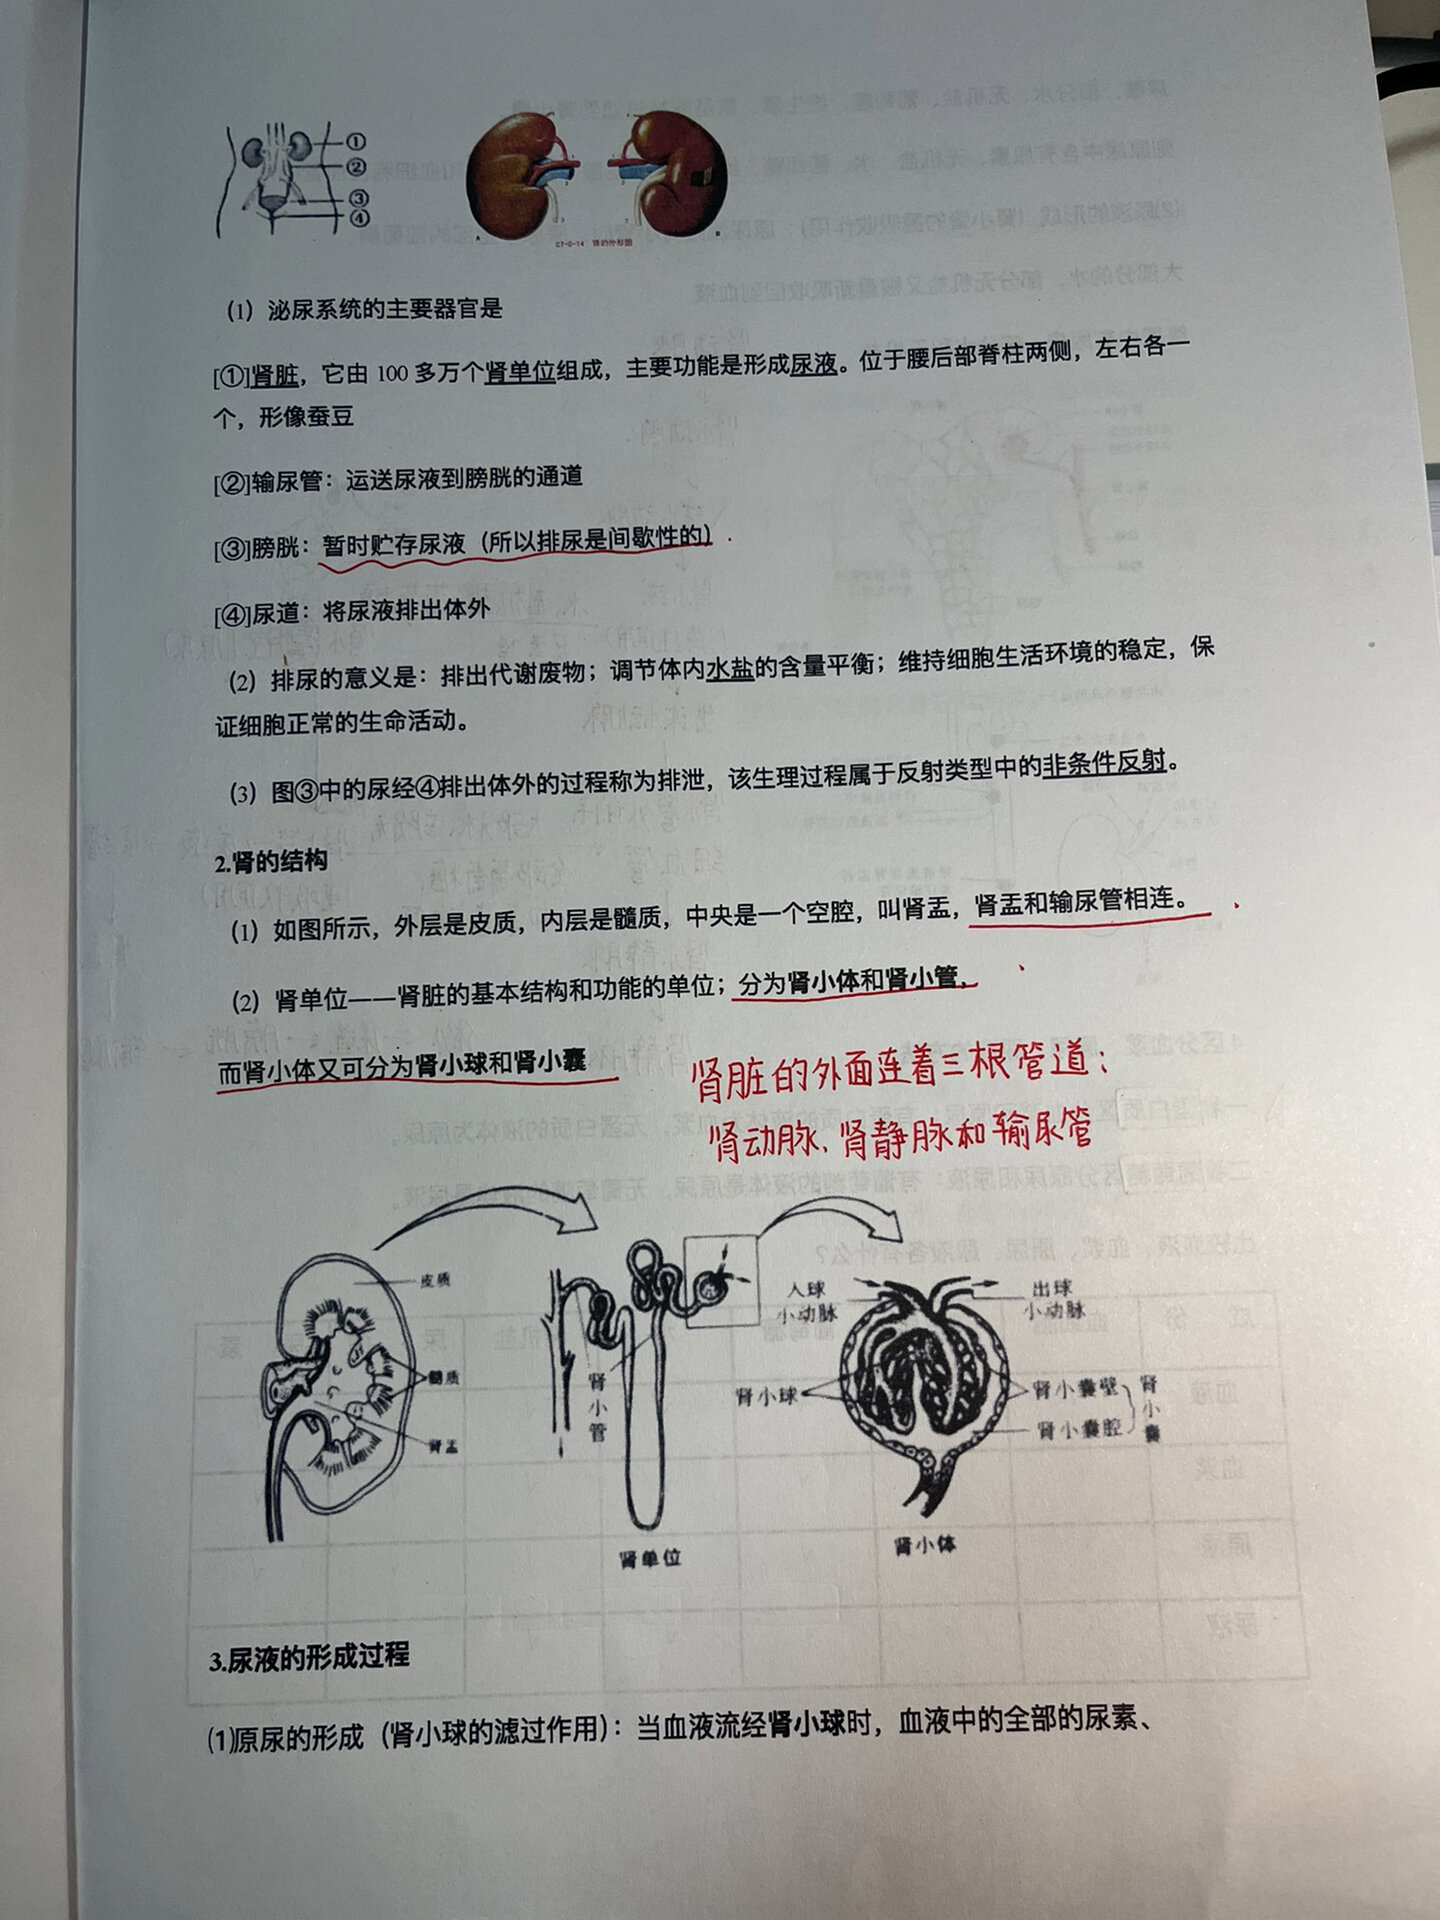 ①
②
③
④
A
B
07-0-14 肾的外形图
(1) 泌尿系统的主要器官是
[①]肾脏，它由 100 多万个肾单位组成，主要功能是形成尿液。位于腰后部脊柱两侧，左右各一
个，形像蚕豆
[②]输尿管：运送尿液到膀胱的通道
[③]膀胱：暂时贮存尿液（所以排尿是间歇性的）
[④]尿道：将尿液排出体外
(2) 排尿的意义是：排出代谢废物；调节体内水盐的含量平衡；维持细胞生活环境的稳定，保
证细胞正常的生命活动。
(3) 图③中的尿经④排出体外的过程称为排泄，该生理过程属于反射类型中的非条件反射。
2.肾的结构
(1) 如图所示，外层是皮质，内层是髓质，中央是一个空腔，叫肾盂，肾盂和输尿管相连。
(2) 肾单位——肾脏的基本结构和功能的单位；分为肾小体和肾小管，
而肾小体又可分为肾小球和肾小囊
肾脏的外面连着三根管道：
肾动脉、肾静脉和输尿管
皮质
髓质
肾盂
肾小管
肾单位
入球
小动脉
出球
小动脉
肾小球
肾小囊壁
肾小囊腔
肾小囊
肾小体
3.尿液的形成过程
(1)原尿的形成（肾小球的滤过作用）：当血液流经肾小球时，血液中的全部的尿素、